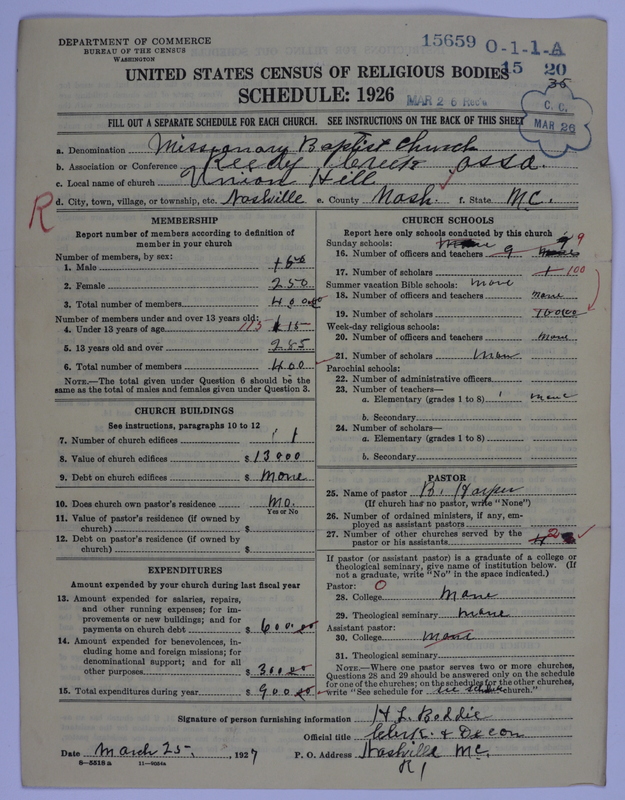 DEPARTMENT OF COMMERCE
BUREAU OF THE CENSUS
WASHINGTON
15659 0-1-1-A
15 20
36
UNITED STATES CENSUS OF RELIGIOUS BODIES
SCHEDULE: 1926
MAR 26 Rec'd
C. C.
MAR 26
FILL OUT A SEPARATE SCHEDULE FOR EACH CHURCH. SEE INSTRUCTIONS ON THE BACK OF THIS SHEET
a. Denomination Missionary Baptist Church
b. Association or Conference Reedy Creek Asso.
c. Local name of church Union Hill
d. City, town, village, or township, etc. Nashville e. County Nash. f. State N.C.
R
MEMBERSHIP
Report number of members according to definition of member in your church
Number of members, by sex:
1. Male
2. Female 250
3. Total number of members 400
Number of members under and over 13 years old:
4. Under 13 years of age 115 115
5. 13 years old and over 285
6. Total number of members 400
NOTE.—The total given under Question 6 should be the same as the total of males and females given under Question 3.
CHURCH BUILDINGS
See instructions, paragraphs 10 to 12
7. Number of church edifices 1
8. Value of church edifices $ 13000
9. Debt on church edifices $ None
10. Does church own pastor's residence No.
Yes or No
11. Value of pastor's residence (if owned by church) $
12. Debt on pastor's residence (if owned by church) $
EXPENDITURES
Amount expended by your church during last fiscal year
13. Amount expended for salaries, repairs, and other running expenses; for improvements or new buildings; and for payments on church debt $ 600.00
14. Amount expended for benevolences, including home and foreign missions; for denominational support; and for all other purposes $ 300.00
15. Total expenditures during year $ 900.00
CHURCH SCHOOLS
Report here only schools conducted by this church
Sunday schools: None 9
16. Number of officers and teachers 9
17. Number of scholars 100
Summer vacation Bible schools: None
18. Number of officers and teachers None
19. Number of scholars
Week-day religious schools:
20. Number of officers and teachers None
21. Number of scholars None
Parochial schools:
22. Number of administrative officers
23. Number of teachers—
a. Elementary (grades 1 to 8) None
b. Secondary
24. Number of scholars—
a. Elementary (grades 1 to 8)
b. Secondary
PASTOR
25. Name of pastor B. Harper
(If church has no pastor, write "None")
26. Number of ordained ministers, if any, employed as assistant pastors
27. Number of other churches served by the pastor or his assistants 2
If pastor (or assistant pastor) is a graduate of a college or theological seminary, give name of institution below. (If not a graduate, write "No" in the space indicated.)
Pastor: 0
28. College None
29. Theological seminary None
Assistant pastor:
30. College None
31. Theological seminary
NOTE.—Where one pastor serves two or more churches, Questions 28 and 29 should be answered only on the schedule for one of the churches; on the schedules for the other churches, write "See schedule for church."
Signature of person furnishing information H L Boddie
Official title Clerk & Decon
Date March 25, 1927 P. O. Address Nashville N.C.
R 1
8-5518 a 11-9054a